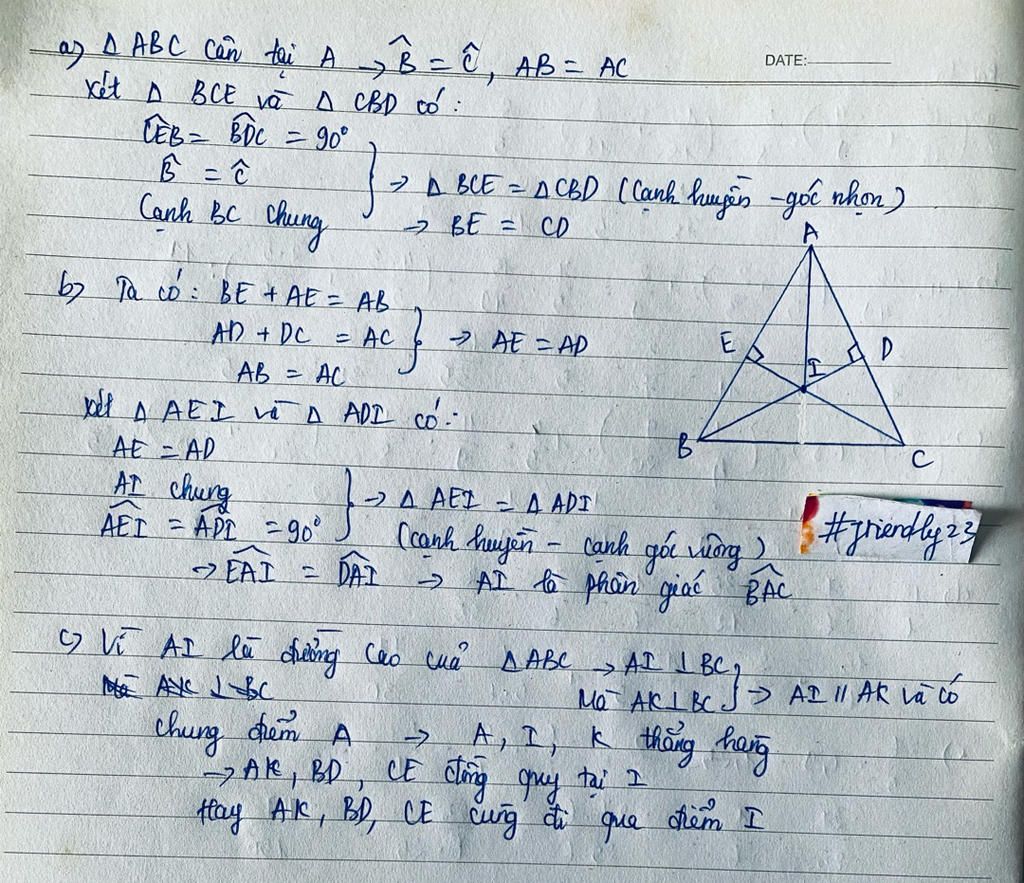 DATE:
a) Δ ABC cân tại A → B̂ = Ĉ, AB = AC
Xét Δ BCE và Δ CBD có:
CEB = BDC = 90°
B̂ = Ĉ
Cạnh BC chung
→ Δ BCE = Δ CBD (Cạnh huyền - góc nhọn)
→ BE = CD
b) Ta có: BE + AE = AB
AD + DC = AC
AB = AC
→ AE = AD
Xét Δ AEI và Δ ADI có:
AE = AD
AI chung
AEI = ADI = 90°
→ Δ AEI = Δ ADI
(cạnh huyền - cạnh góc vuông)
→ EAI = DAI → AI là phân giác BAC
A
E
D
I
B
C
#friendly23
c) Vì AI là đường cao của Δ ABC → AI ⊥ BC
Mà AK ⊥ BC
→ AI // AK và có
chung điểm A → A, I, K thẳng hàng
→ AK, BD, CE đồng quy tại I
Hay AK, BD, CE cùng đi qua điểm I